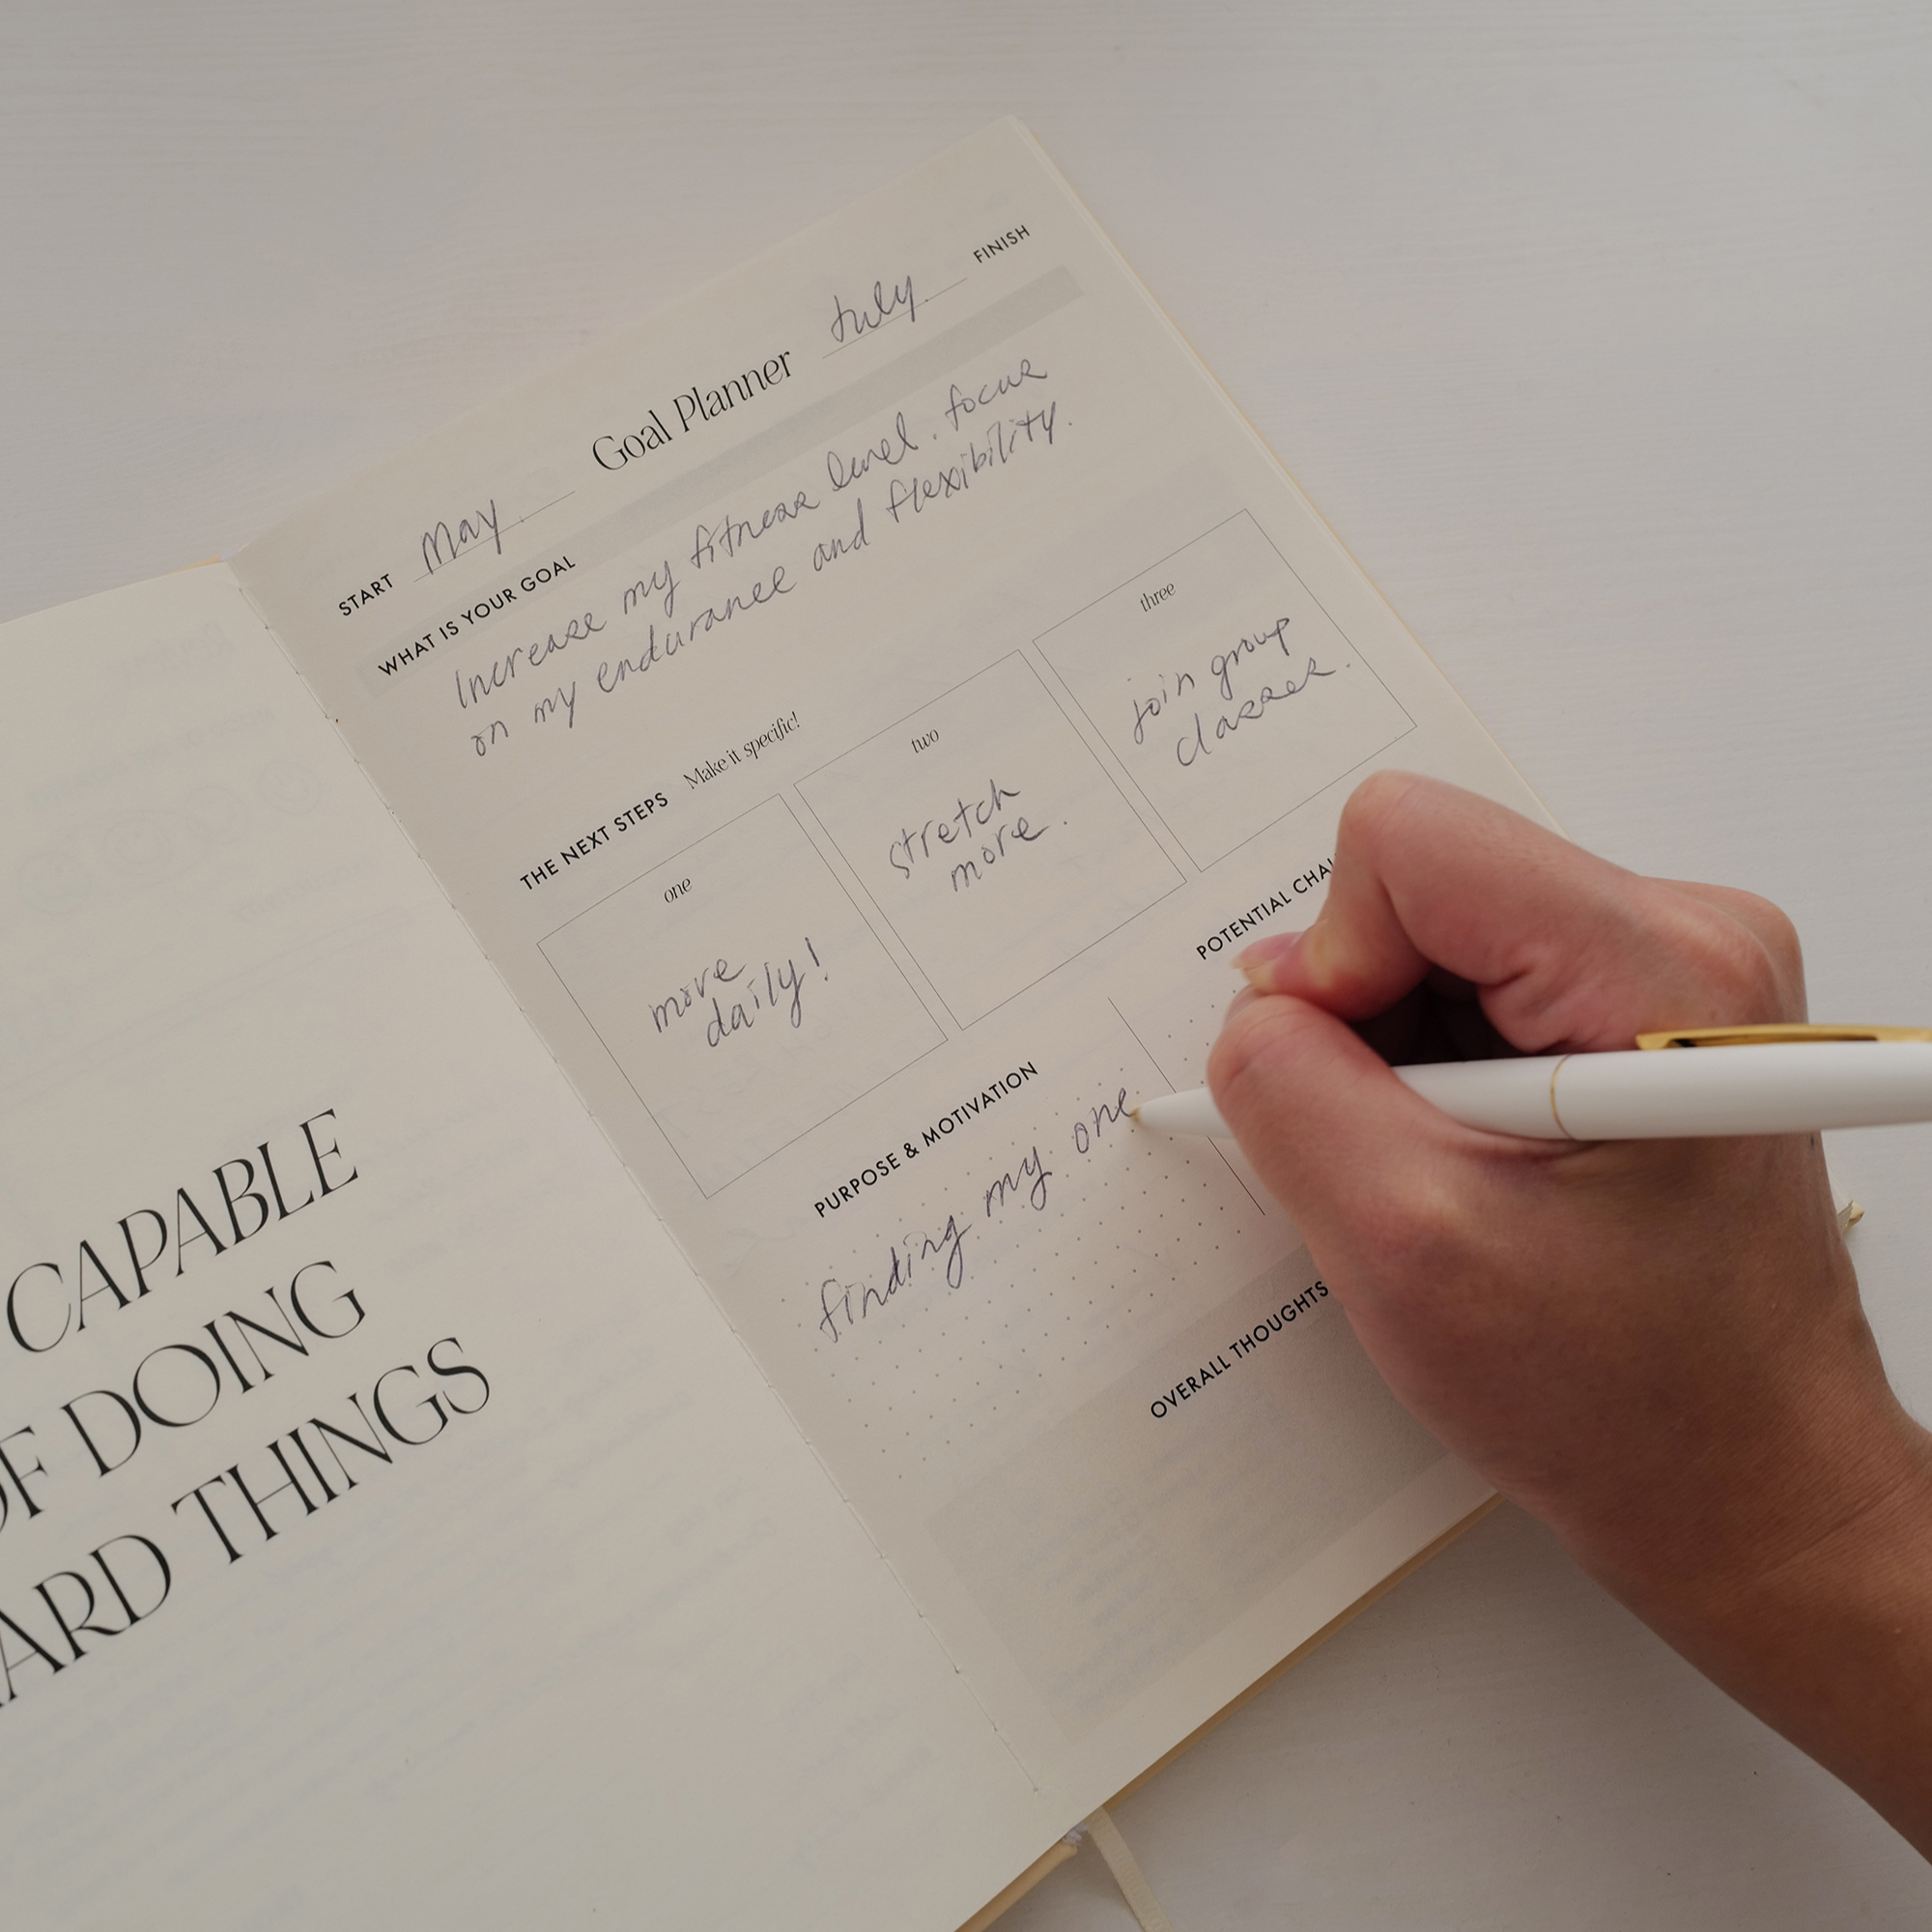 CAPABLE
OF DOING
HARD THINGS
START May.
Goal Planner
July. FINISH
WHAT IS YOUR GOAL
Increase my fitness level. focus
on my endurance and flexibility.
THE NEXT STEPS Make it specific!
one
move
daily!
two
stretch
more.
three
join group
classes.
PURPOSE & MOTIVATION
finding my one
POTENTIAL
OVERALL THOUGHTS